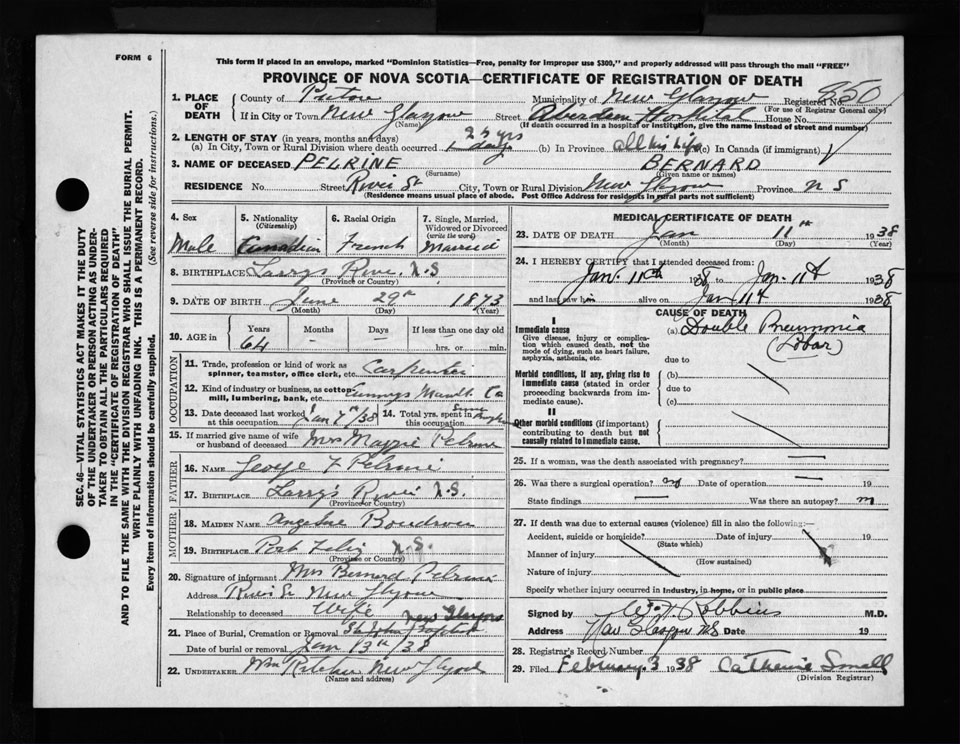 FORM 6
This form if placed in an envelope, marked "Dominion Statistics—Free, penalty for improper use $300," and properly addressed will pass through the mail "FREE"
PROVINCE OF NOVA SCOTIA—CERTIFICATE OF REGISTRATION OF DEATH
1. PLACE OF DEATH County of Pictou Municipality of New Glasgow Registered No. 850
(For use of Registrar General only)
If in City or Town New Glasgow Street Aberdeen Hospital House No.
(Name) (If death occurred in a hospital or institution, give the name instead of street and number)
2. LENGTH OF STAY (in years, months and days) 25 yrs
(a) In City, Town or Rural Division where death occurred days (b) In Province all his life (c) In Canada (if immigrant)
3. NAME OF DECEASED PELRINE BERNARD
(Surname) (Given name or names)
RESIDENCE No. Street River St City, Town or Rural Division New Glasgow Province N S
(Residence means usual place of abode. Post Office Address for residents in rural parts not sufficient)
4. Sex Male
5. Nationality (Citizenship) Canadian
6. Racial Origin French
7. Single, Married, Widowed or Divorced (write the word) Married
8. BIRTHPLACE Larrys River. N.S.
(Province or Country)
9. DATE OF BIRTH June 29th 1873
(Month) (Day) (Year)
10. AGE in Years 64 Months - Days - If less than one day old hrs. or min.
OCCUPATION
11. Trade, profession or kind of work as spinner, teamster, office clerk, etc. Carpenter
12. Kind of industry or business, as cotton mill, lumbering, bank, etc. Manft. Co
13. Date deceased last worked at this occupation Jan 7th/38 14. Total yrs. spent in this occupation
15. If married give name of wife or husband of deceased Mrs Maggie Pelrine
FATHER
16. NAME George F Pelrine
17. BIRTHPLACE Larry's River N.S.
(Province or Country)
MOTHER
18. MAIDEN NAME Angeline Boudreau
19. BIRTHPLACE Port Felix N.S.
(Province or Country)
20. Signature of informant Mrs Bernard Pelrine
Address River St New Glasgow
Relationship to deceased Wife
21. Place of Burial, Cremation or Removal St John Baptist New Glasgow
Date of burial or removal Jan 13th/38
22. UNDERTAKER Wm New Glasgow
(Name and address)
MEDICAL CERTIFICATE OF DEATH
23. DATE OF DEATH Jan 11th 1938
(Month) (Day) (Year)
24. I HEREBY CERTIFY that I attended deceased from:
Jan. 11th 1938 to Jan. 11th 1938
and last saw him alive on Jan 11th 1938
CAUSE OF DEATH
I
Immediate cause
Give disease, injury or complication which caused death, not the mode of dying, such as heart failure, asphyxia, asthenia, etc.
(a) Double Pneumonia
(Lobar)
due to
Morbid conditions, if any, giving rise to immediate cause (stated in order proceeding backwards from immediate cause).
(b)
due to
(c)
II
Other morbid conditions (if important) contributing to death but not causally related to immediate cause.
25. If a woman, was the death associated with pregnancy?
26. Was there a surgical operation? no Date of operation 19
State findings Was there an autopsy? no
27. If death was due to external causes (violence) fill in also the following:—
Accident, suicide or homicide? Date of injury 19
(State which)
Manner of injury
(How sustained)
Nature of injury
Specify whether injury occurred in Industry, in home, or in public place
Signed by Robbins M.D.
Address New Glasgow N.S. Date 19
28. Registrar's Record Number
29. Filed February 3 1938 Catherine Small
(Division Registrar)
SEC. 46—VITAL STATISTICS ACT MAKES IT THE DUTY
OF THE UNDERTAKER OR PERSON ACTING AS UNDERTAKER
TO OBTAIN ALL THE PARTICULARS REQUIRED
IN THE "CERTIFICATE OF REGISTRATION OF DEATH"
AND TO FILE THE SAME WITH THE DIVISION REGISTRAR WHO SHALL ISSUE THE BURIAL PERMIT.
WRITE PLAINLY WITH UNFADING INK. THIS IS A PERMANENT RECORD.
Every item of information should be carefully supplied. (See reverse side for instructions.)